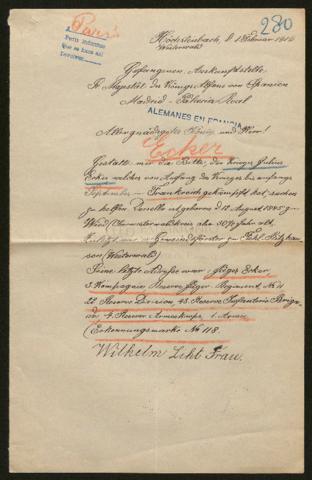 Paris
280
Höchstenbach, d. 1 Februar 1916
Westerwald
Gefangenen Auskunftstelle
Sr Majestät des Königs Alfons von Spanien
Madrid - Palacio Real
ALEMANES EN FRANCIA
Allergnädigster König und Herr!
Ecker
Gestatte mir die Bitte, den Julius
Ecker welcher von Anfang des Krieges bis anfangs
September - Frankreich gekämpft hat, suchen
zu helfen. Derselbe ist geboren d 12. August 1885 zu
alt,
zuletzt war er Gemeindeförster zu
(Westerwald)
Seine letzte Adresse war: Jäger Ecker
3 Kompagnie Reserve Jäger No 11
22 Reserve Division, 43 Reserve Infanterie
4 Reserve Armeekorps 1 Armee
(Erkennungsmarke No 118.
Wilhelm Frau.